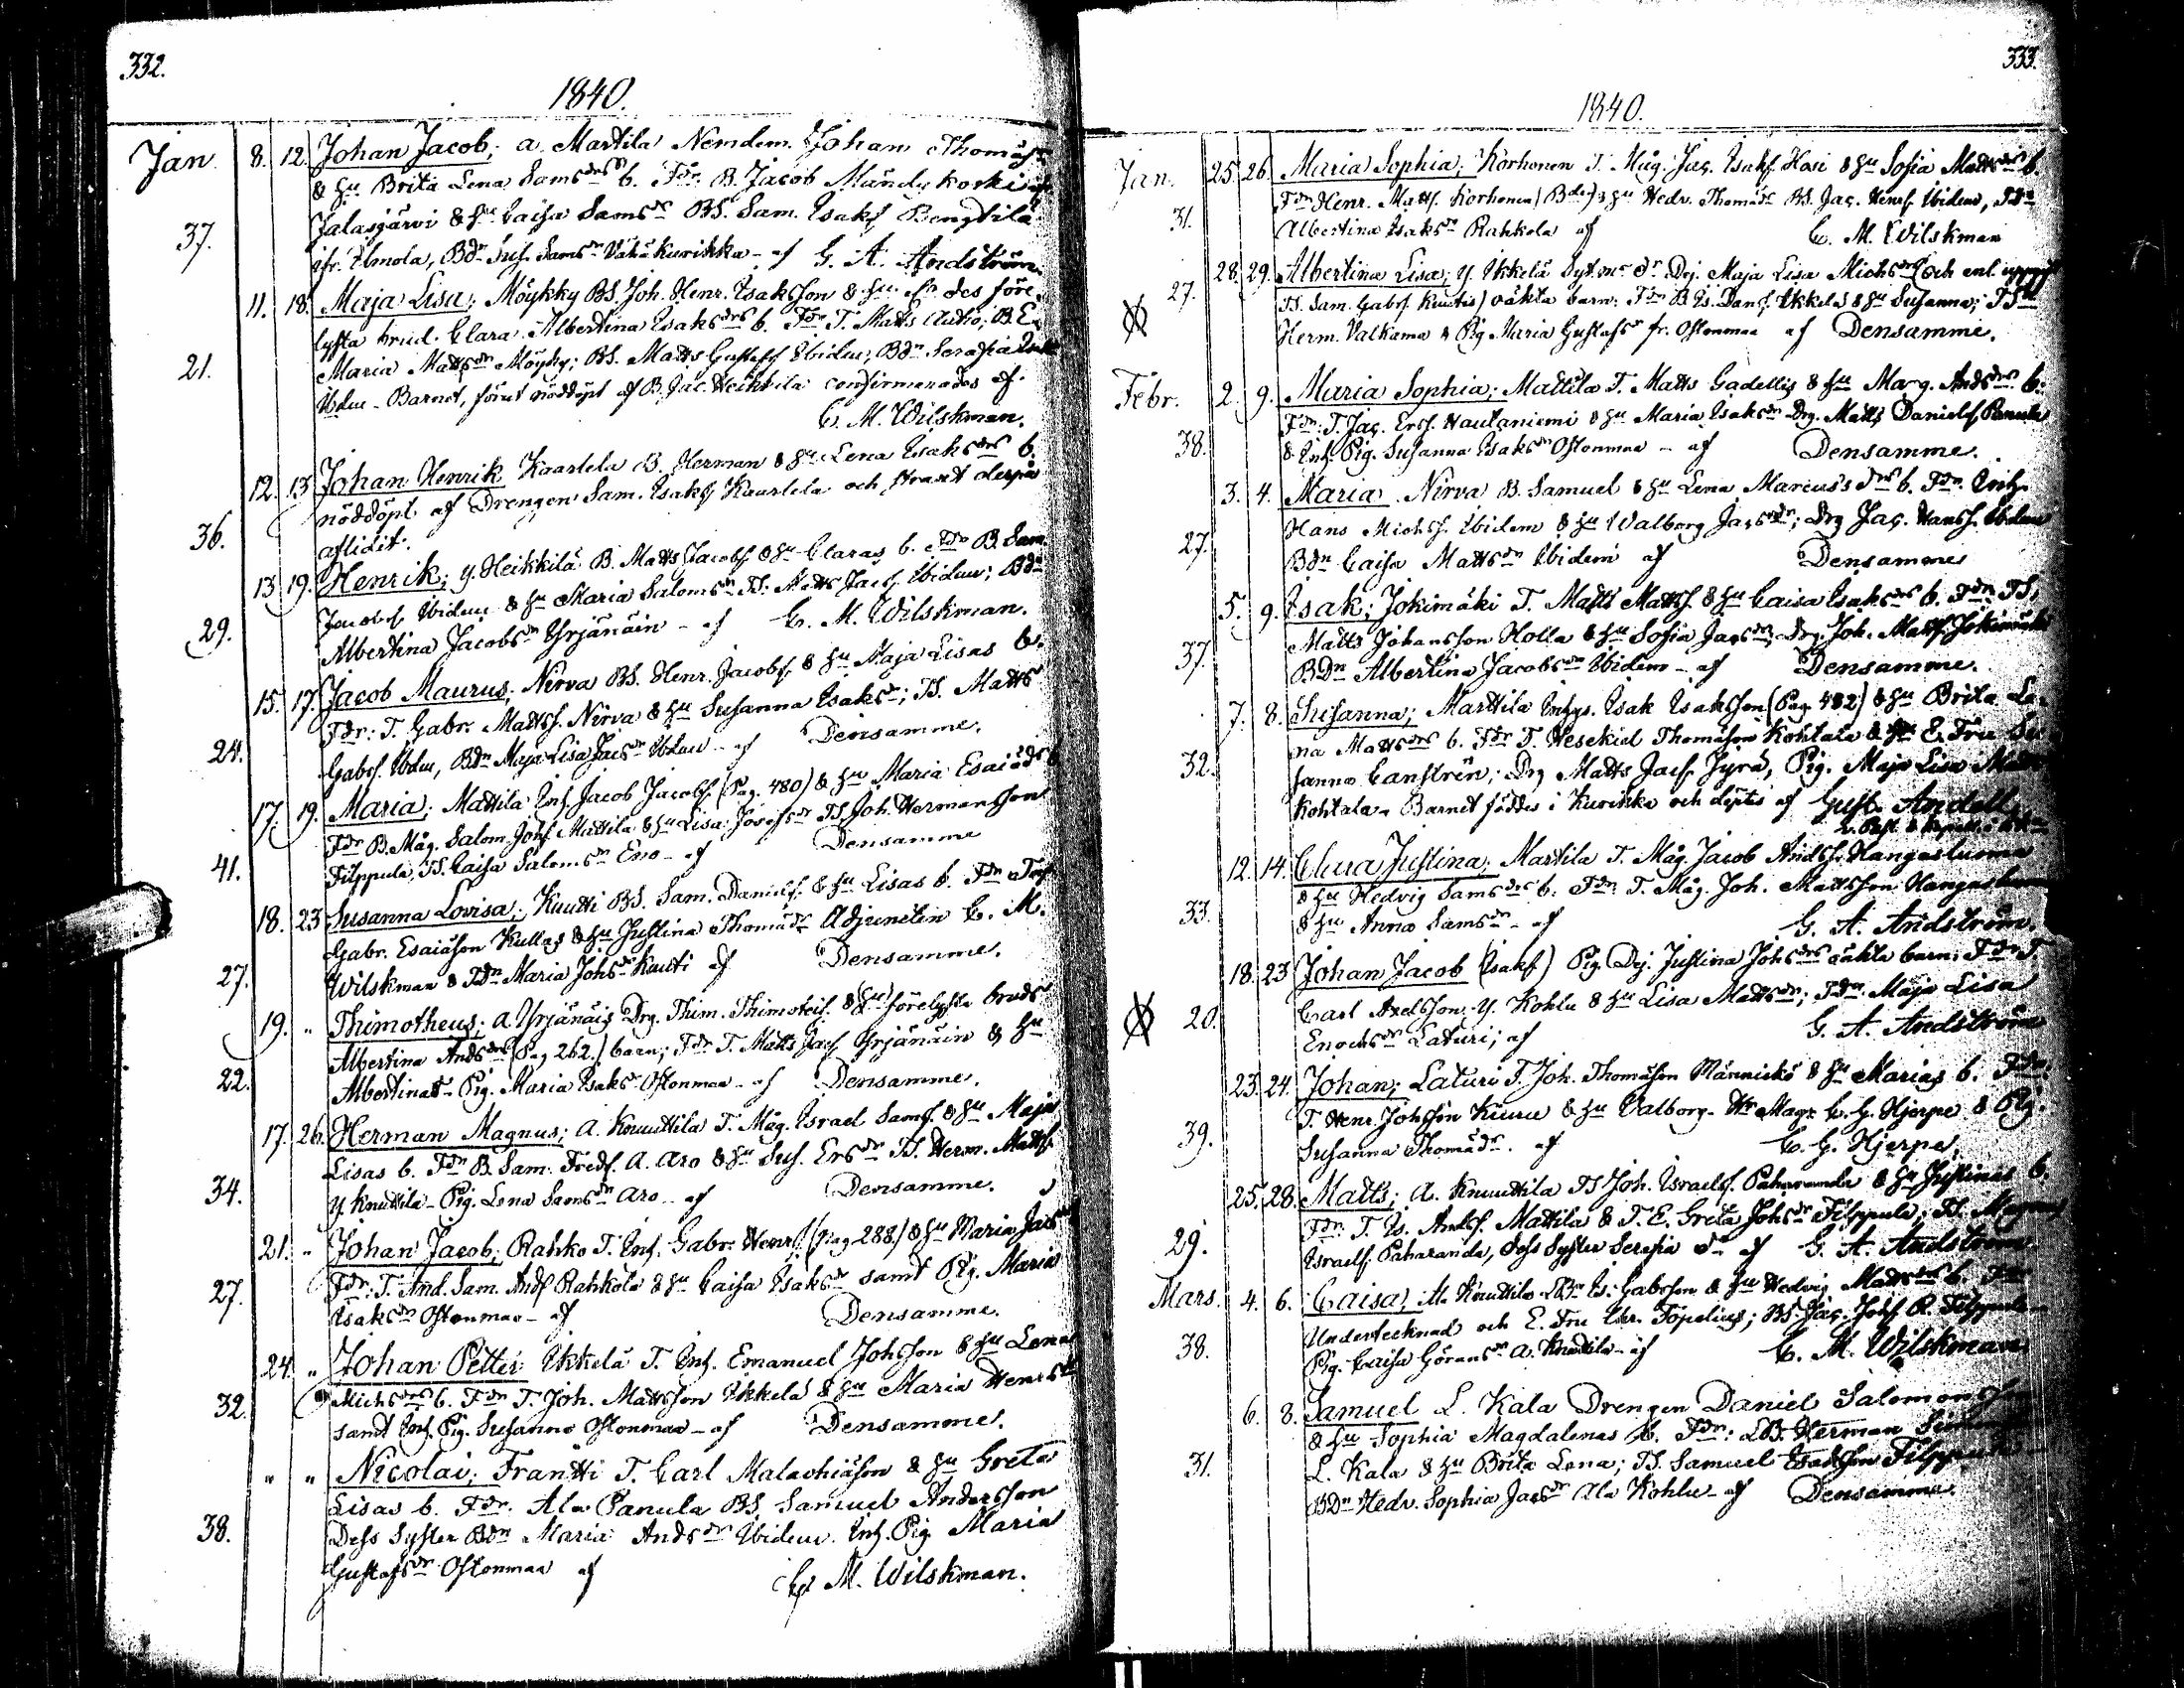 332.
1840.
Jan 8. 12. Johan Jacob; a. Martila Nemdem. Johan Thomäs
& hu Brita Lena Samsdrs b. Fdr: B. Jacob Mändykoski
Jalasjärvi & hu Caisa Samsdr BS. Sam. Isaks Bengtila
37.
ifr. Ilmola, Bdr Sus. Samsdr Vähäkurikka - af G. A. Andström.
11. 18. Maja Lisa; Möykky BS. Joh. Henr. Isaksson & hu des före-
lysta brud. Clara Albertina Isaksdrs b. Fdr T. Matts Autio; B. E.
21.
Maria Mattsdr Möyky; BS. Matts Gustafs Ibidem; Bdr Serafia
Ibdm - Barnet, förut nöddöpt af B. Jac. Heikkila confirmerades af
C. M. Wilskman.
12. 13 Johan Henrik Kaarlela B. Herman & hu Lena Isaksdrs b.
nöddöpt af Drengen Sam. Isaks Kaarlela och straxt derpå
36.
aflidit.
13 19. Henrik; y. Heikkilä B. Matts Jacobs & hu Claras b. Fdr B. Sam.
Jacobs Ibidem & hu Maria Salomsdr TS. Matts Jacs. Ibidem; Bdr
29.
Albertina Jacobsdr Yrjänäin - af C. M. Wilskman.
15. 17. Jacob Maurus; Nirva BS. Henr. Jacobs. & hu Maja Lisas b.
Fdr: T. Gabr. Mattss. Nirva & hu Susanna Isaksdr; TS. Matts
24.
Gabrs. Ibdm, Bdr Maja Lisa Jacsdr Ibdm - af Densamme.
17. 19. Maria; Mattila Inh. Jacob Jacobs. (Pag. 480) & hu Maria Esaiädrs b
Fdr B. Måg. Salom. Johs Mattila & hu Lisa Josefsdr TS Joh. Hermansson
41.
Filppula, TS. Caisa Salomsdr Eno - af Densamme
18. 23 Susanna Lovisa; Knutti BS. Sam. Daniels. & hu Lisas b. Fdr
Gabr. Esaiäson Kullas & hu Justina Thomädr Adjuncten C. M.
27.
Wilskman & Tdr Maria Johsdr Knuti af Densamme.
19. " Thimotheus; a. Yrjänäis Drg. Thim. Thimoteis. & (hu) förelysta bruds
Albertina Andsdrs (Pag 262.) barn; Fdr T. Matts Jacs Yrjänäin & hu
22.
Albertina - Pig. Maria Isaksdr Ostonmaa - af Densamme.
17. 26. Herman Magnus; A. Knuuttila T. Måg. Israel Sams. & hu Maja
Lisas b. Fdr B. Sam. Freds. A. Aro & hu Sus. Ersdr TS. Herm. Matts.
34.
y Knuttila - Pig. Lena Samsdr Aro - af Densamme.
21. " Johan Jacob; Rahko T. Inh. Gabr. Henrs. (pag 288.) & hu Maria Jacsdrs
Fdr: T. And. Sam. Ands Rahkola & hu Caisa Isaksdr samt Pig. Maria
27.
Isaksdr Ostonmaa - af Densamme.
24. " Johan Petter Ikkelä T. Inh. Emanuel Johsson & hu Lena
Michsdrs b. Fdr T. Joh. Mattsson Ikkelä & hu Maria Henrsdr
32.
samt Inh. Pig. Susanna Ostonmaa - af Densamme.
" " Nicolai; Frantti T. Carl Malachiäson & hu Greta
Lisas b. Fdr. Ala Panula BS. Samuel Andersson
Dess Syster Bdr Maria Andsdr Ibidem. Inh. Pig Maria
38.
Gustafsdr Ostonmaa af C. M. Wilskman.
333.
1840.
Jan. 25. 26. Maria Sophia; Korhonen T. Måg. Jac. Isaks. Hasi & hu Sofia Mattsdrs b.
Fdr Henr. Matts. Korhonen (Bde) & hu Hedv. Thomädr BS. Jac. Henrs. Ibidem, Tdr
31.
Albertina Isaksdr Rahkola af C. M. Wilskman
28. 29. Albertina Lisa; y. Ikkelä Dej. Maja Lisa Michsdrs (och enl. uppgf
27.
TS. Sam. Gabrs. Knutis) oäkta barn; Fdr B Es. Dans. Ikkelä & hu Susanna; TS
Herm. Valkama & Pig Maria Gustafsdr fr. Ostonmaa af Densamme.
Febr. 2. 9. Maria Sophia; Mattila T. Matts Gabellis & hu Marg. Andsdrs b.
Fdr: T. Jac. Ers. Hautaniemi & hu Maria Isaksdr Drg. Matts Daniels. Panula
38.
& Inh. Pig. Susanna Isaksdr Ostonmaa - af Densamme.
3. 4. Maria Nirva B. Samuel & hu Lena Marcusdrs b. Fdr Inh.
Hans Michss. Ibidem & hu Walborg Jacsdr; Drg Jac. Hanss. Ibidem
27.
Bdr Caisa Mattsdr Ibidem af Densamme
5. 9. Isak; Jokimäki T. Matts Mattss. & hu Caisa Isaksdrs b. Fdr TS,
Matts Johansson Holla & hu Sofia Jacsdr, Drg. Joh. Mattss. Jokimäki
37.
BDr Albertina Jacobsdr Ibidem - af Densamme.
7. 8. Susanna; Marttila Inhys. Isak Isaksson (Pag 482) & hu Brita Le-
na Mattsdrs b. Fdr T. Hesekiel Thomäson Kohtala & E. Fru Su-
32.
sanna Canstrén; Drg Matts Jacs. Jyrä, Pig. Maja Lisa
Kohtala - Barnet föddes i Kurikka och döptes af Gust. Andell
12. 14. Clara Justina; Martila T. Måg. Jacob Andss. Hangasluoma
& hu Hedvig Samsdrs b. Fdr: T. Måg. Joh. Mattsson Hangasluoma
33.
& hu Anna Samsdr - af G. A. Andström.
18. 23 Johan Jacob (Isaks) Pig. Dej. Justina Johsdrs oäkta barn; Fdr T.
Carl Axelsson Y. Kohlu & hu Lisa Mattsdr; Tdr. Maja Lisa
20.
Enochsdr Laturi; af G. A. Andström
23. 24. Johan; Laturi T. Joh. Thomäson Männickö & hu Marias b. Fdr.
T. Henr. Johsson Kuuru & hu Valborg - Hr Mag. C. G. Hjerpe & Pig.
39.
Susanna Thomädr. af C. G. Hjerpe
25. 28. Matts; A. Knuuttila TS Joh. Israels. Paharanda & hu Justinas b.
Fdr. T. Es. Ands. Mattila & T. E. Greta Johsdr Filppula; TS. Magnus
29.
Israels. Paharanda, dess Syster Serafia af G. A. Andström.
Mars. 4. 6. Caisa; A. Knuttila LBr Es. Gabrsson & hu Hedvig Mattsdrs b. Fdr
Undertecknad och E. Fru Topelius; BS. Jac. Johs R. Filppula
38.
Pig. Caisa Göransdr A. Knuttila - af C. M. Wilskman
6. 8. Samuel L. Kala Drengen Daniel Salomonsson
& hu Sophia Magdalenas b. Fdr: LB. Herman
31.
L. Kala & hu Brita Lena; TS. Samuel Isaksson Filppula
BDr Hedv. Sophia Jacsdr Ala Kohlu - af Densamme.